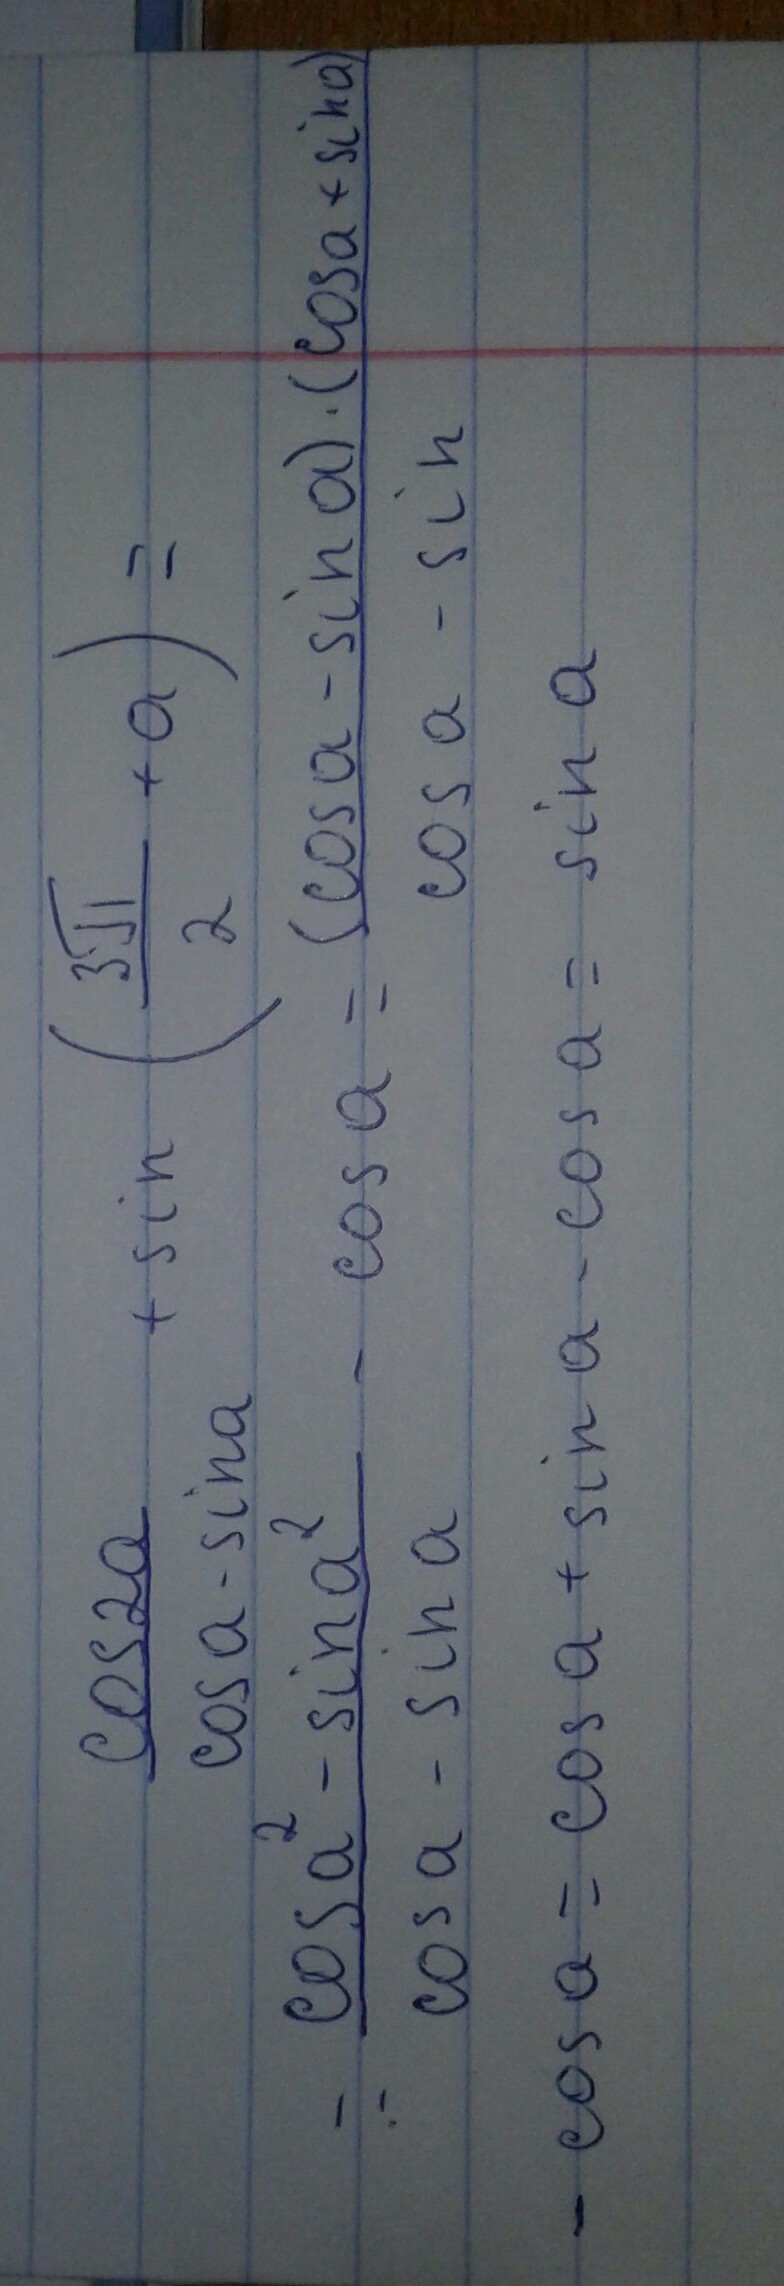 cos2a/(cosa - sina) + sin (3π/2 + a) =
= (cosa² - sina²)/(cosa - sina) - cosa = (cosa - sina)·(cosa + sina)/(cosa - sin
- cosa = cosa + sina - cosa = sina